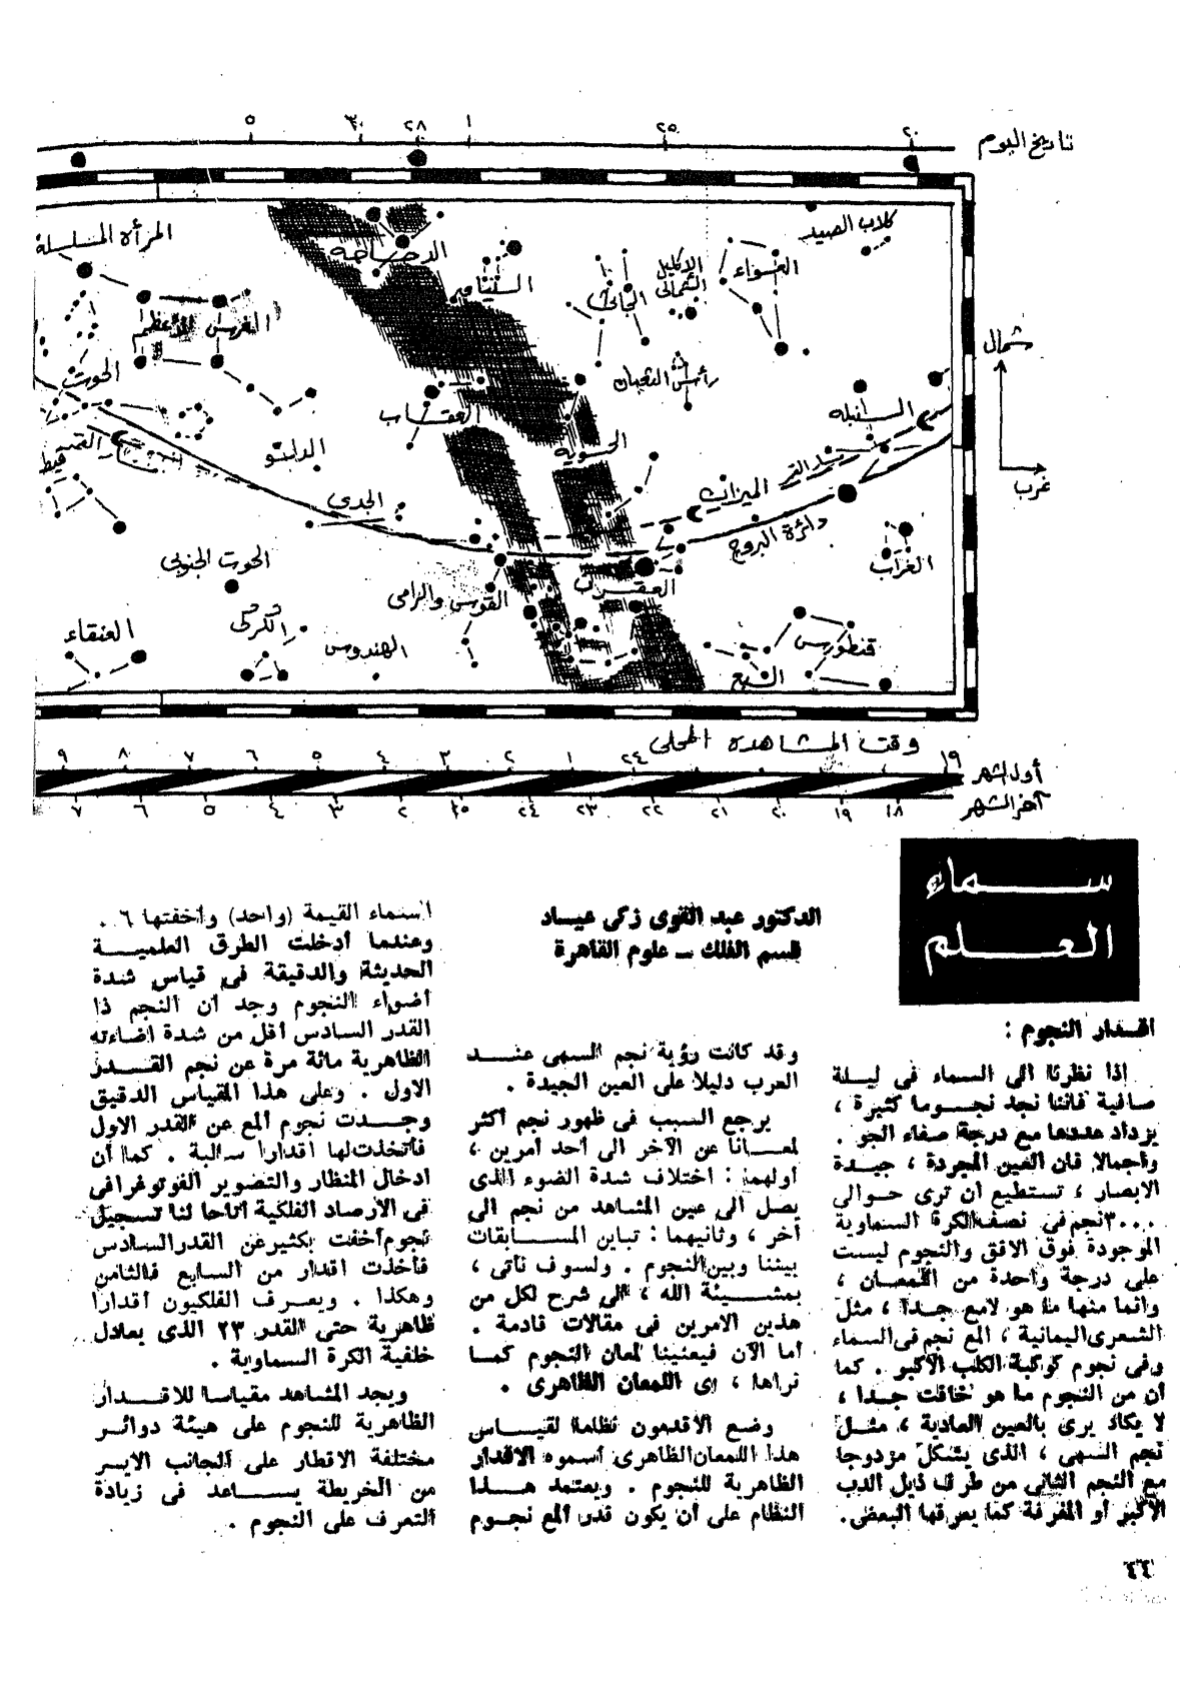 تاريخ اليوم
٢٠ ٢٥ ١ ٢٨ ٣٠ ٥
كلاب الصيد
العواء
الإكليل الشمالى
الجاثى
الدجاجة
المرأة المسلسلة
الفرس الأعظم
الحوت
رأس الثعبان
السنبلة
العقاب
الحوية
الدلو
القمر
قيطس
الجدى
الميزان
دائرة البروج
الغراب
الحوت الجنوبى
العقرب
القوس والرامى
العنقاء
الكركى
الهندوس
قنطورس
السبع
شمال
غرب
وقت المشاهدة المحلى
أول الشهر
١٩ ٢٤ ١ ٢ ٣ ٤ ٥ ٦ ٧ ٨ ٩
آخر الشهر
١٨ ١٩ ٢٠ ٢١ ٢٢ ٢٣ ٢٤ ٢٥ ٢ ٣ ٤ ٥ ٦ ٧
سماء
العلم
الدكتور عبد القوى زكى عياد
قسم الفلك ـ علوم القاهرة
اقدار النجوم :
اذا نظرنا الى السماء فى ليلة
صافية فاننا نجد نجوما كثيرة ،
يزداد عددها مع درجة صفاء الجو .
واجمالا فان العين المجردة ، جيدة
الابصار ، تستطيع أن ترى حوالى
٣٠٠٠ نجم فى نصف الكرة السماوية
الموجودة فوق الافق والنجوم ليست
على درجة واحدة من اللمعان ،
وانما منها ما هو لامع جدا ، مثل
الشعرى اليمانية ، المع نجم فى السماء
وفى نجوم كوكبة الكلب الأكبر . كما
أن من النجوم ما هو خافت جدا ،
لا يكاد يرى بالعين العادية ، مثل
نجم السهى ، الذى يشكل مزدوجا
مع النجم الثانى من طرف ذيل الدب
الأكبر أو المغرفة كما يعرفها البعض.
وقد كانت رؤية نجم السهى عند
العرب دليلا على العين الجيدة .
يرجع السبب فى ظهور نجم أكثر
لمعانا عن الآخر الى أحد أمرين ،
أولهما : اختلاف شدة الضوء الذى
يصل الى عين المشاهد من نجم الى
آخر ، وثانيهما : تباين المسابقات
بيننا وبين النجوم . ولسوف نأتى ،
بمشيئة الله ، الى شرح لكل من
هذين الامرين فى مقالات قادمة .
أما الآن فيعنينا لمعان النجوم كما
نراها ، أى اللمعان الظاهرى .
وضع الأقدمون نظاما لقياس
هذا اللمعان الظاهرى أسموه الاقدار
الظاهرية للنجوم . ويعتمد هذا
النظام على أن يكون قدر المع نجوم
السماء القيمة (واحد) وأخفتها ٦ .
وعندما أدخلت الطرق العلمية
الحديثة والدقيقة فى قياس شدة
أضواء النجوم وجد أن النجم ذا
القدر السادس أقل من شدة اضاءته
الظاهرية مائة مرة عن نجم القدر
الاول . وعلى هذا المقياس الدقيق
وجدت نجوم المع عن القدر الاول
فأتخذت لها اقدارا سالبة . كما أن
ادخال المنظار والتصوير الفوتوغرافى
فى الأرصاد الفلكية أتاحا لنا تسجيل
نجوم أخفت بكثير عن القدر السادس
فأخذت اقدار من السابع فالثامن
وهكذا . ويعرف الفلكيون أقدارا
ظاهرية حتى القدر ٢٣ الذى يعادل
خلفية الكرة السماوية .
ويجد المشاهد مقياسا للاقدار
الظاهرية للنجوم على هيئة دوائر
مختلفة الاقطار على الجانب الايسر
من الخريطة يساعد فى زيادة
التعرف على النجوم .
٤٤